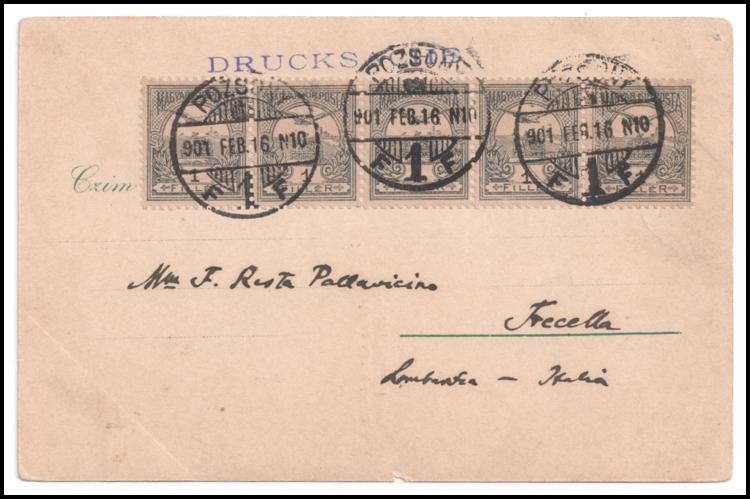 DRUCKSACHE
MAGYAR KIR. POSTA
1 FILLÉR
POZSONY
901 FEB.16 N10
F 1 F
POZSONY
901 FEB.16 N10
F 1 F
POZSONY
901 FEB.16 N10
F 1 F
Czim
Mme F. Resta Pallavicino
Frecella
Lombardia – Italia